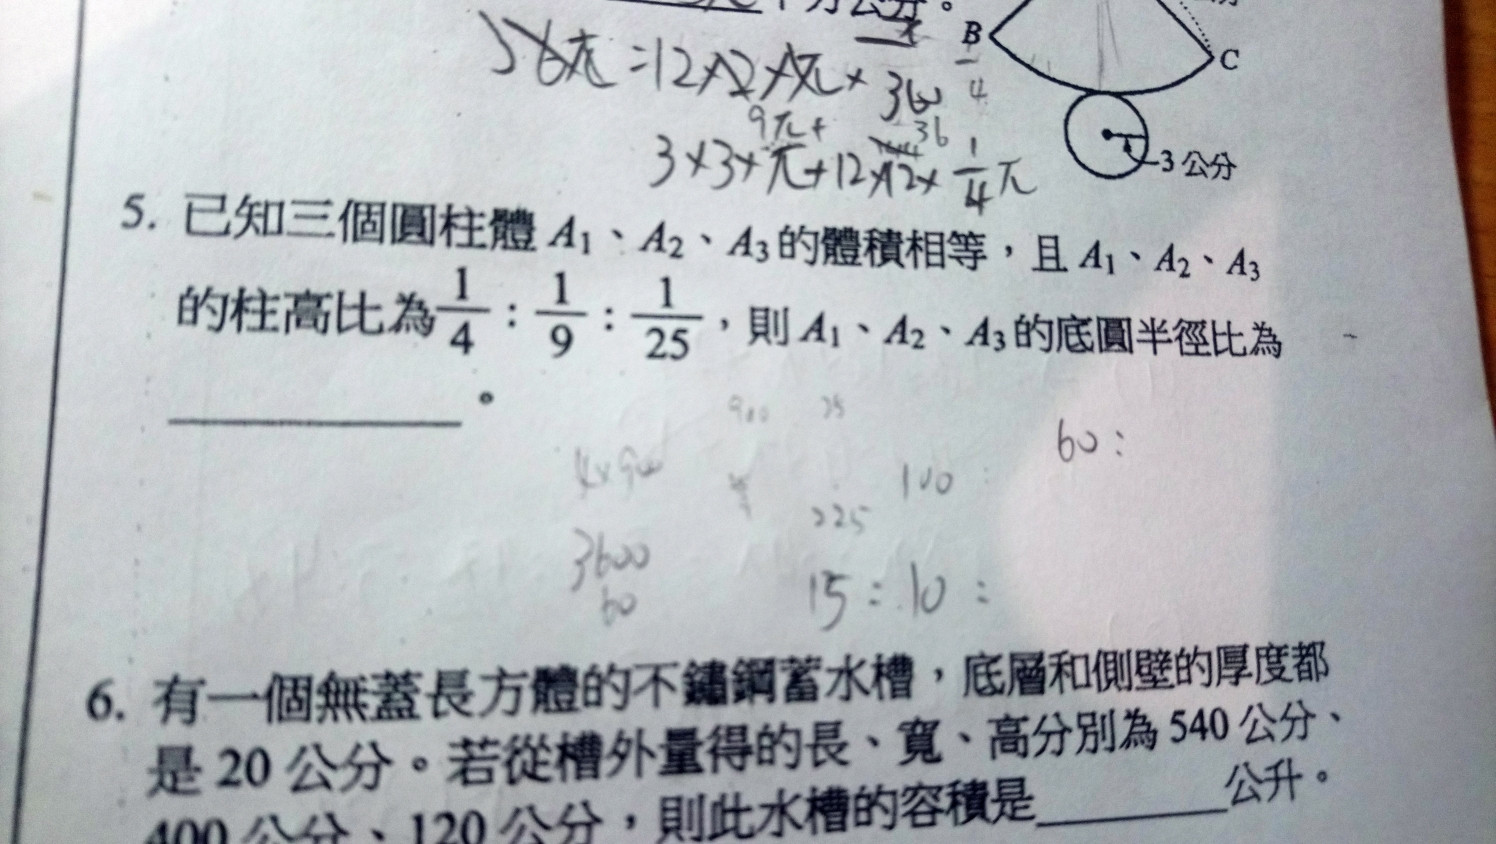 B
C
36π=12×12×π×
360
4
9π+
36
3×3×π+12×12×1/4π
3公分
5. 已知三個圓柱體 A₁、A₂、A₃的體積相等，且 A₁、A₂、A₃
的柱高比為 1/4 : 1/9 : 1/25，則 A₁、A₂、A₃的底圓半徑比為
。
900 25
60:
4×900
100
225
3600
60
15:10:
6. 有一個無蓋長方體的不鏽鋼蓄水槽，底層和側壁的厚度都
是20公分。若從槽外量得的長、寬、高分別為540公分、
400公分、120公分，則此水槽的容積是________公升。